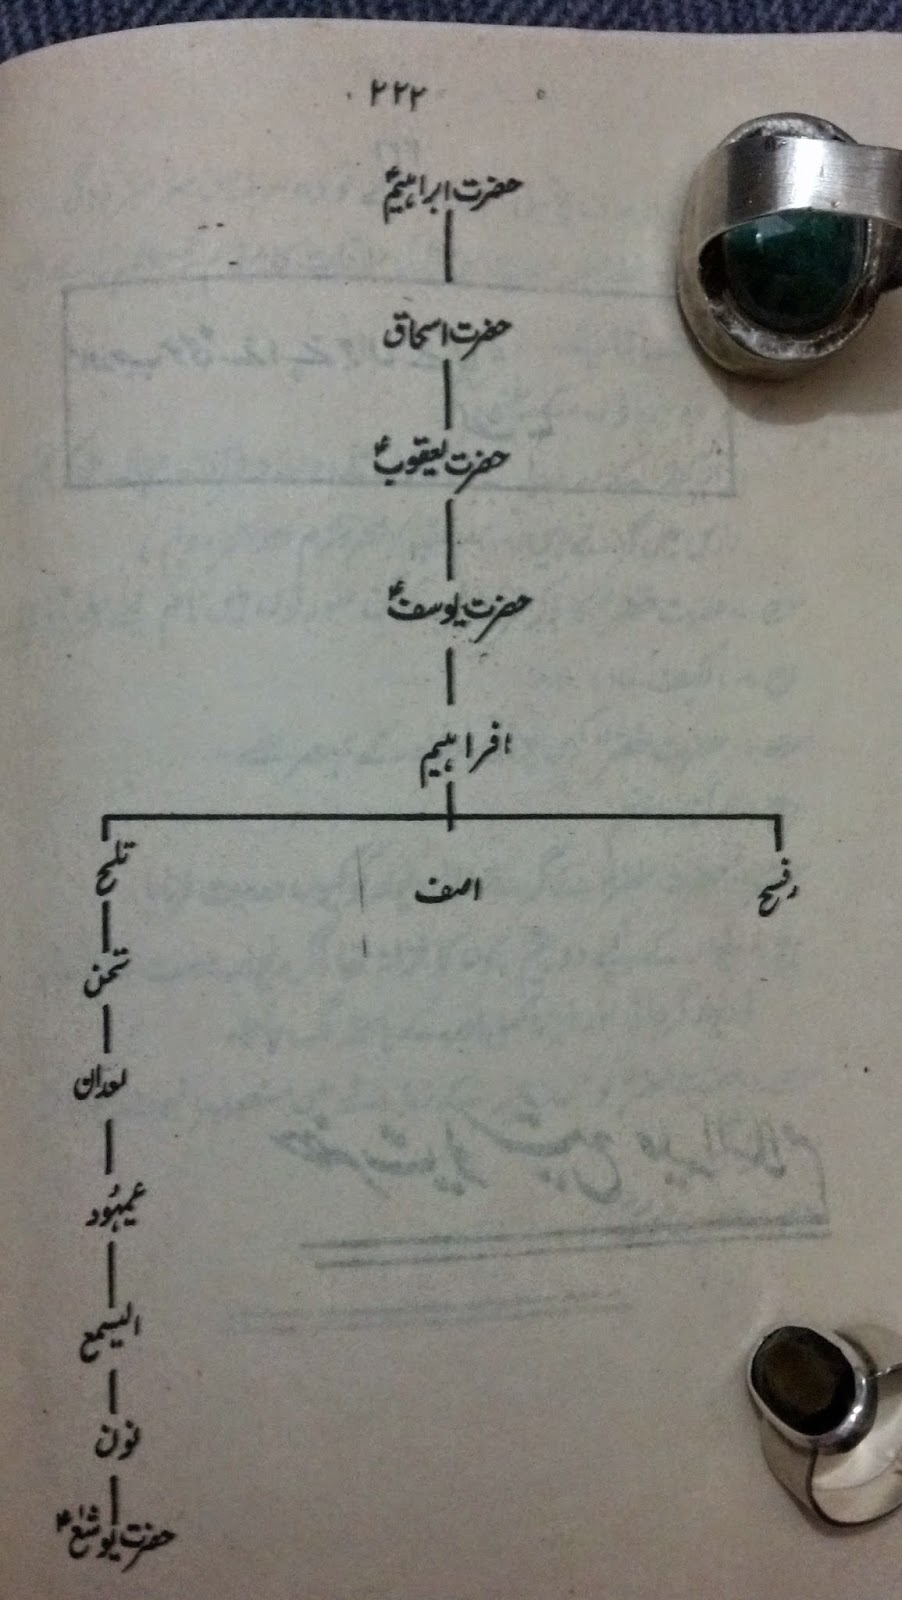 ۲۲۲
حضرت ابراہیمؑ
حضرت اسحاق
حضرت یعقوبؑ
حضرت یوسفؑ
افراہیم
رفسح
اصف
تلح
تحن
لعدان
عمیہُود
الیسمع
نون
حضرت یوشعؑ